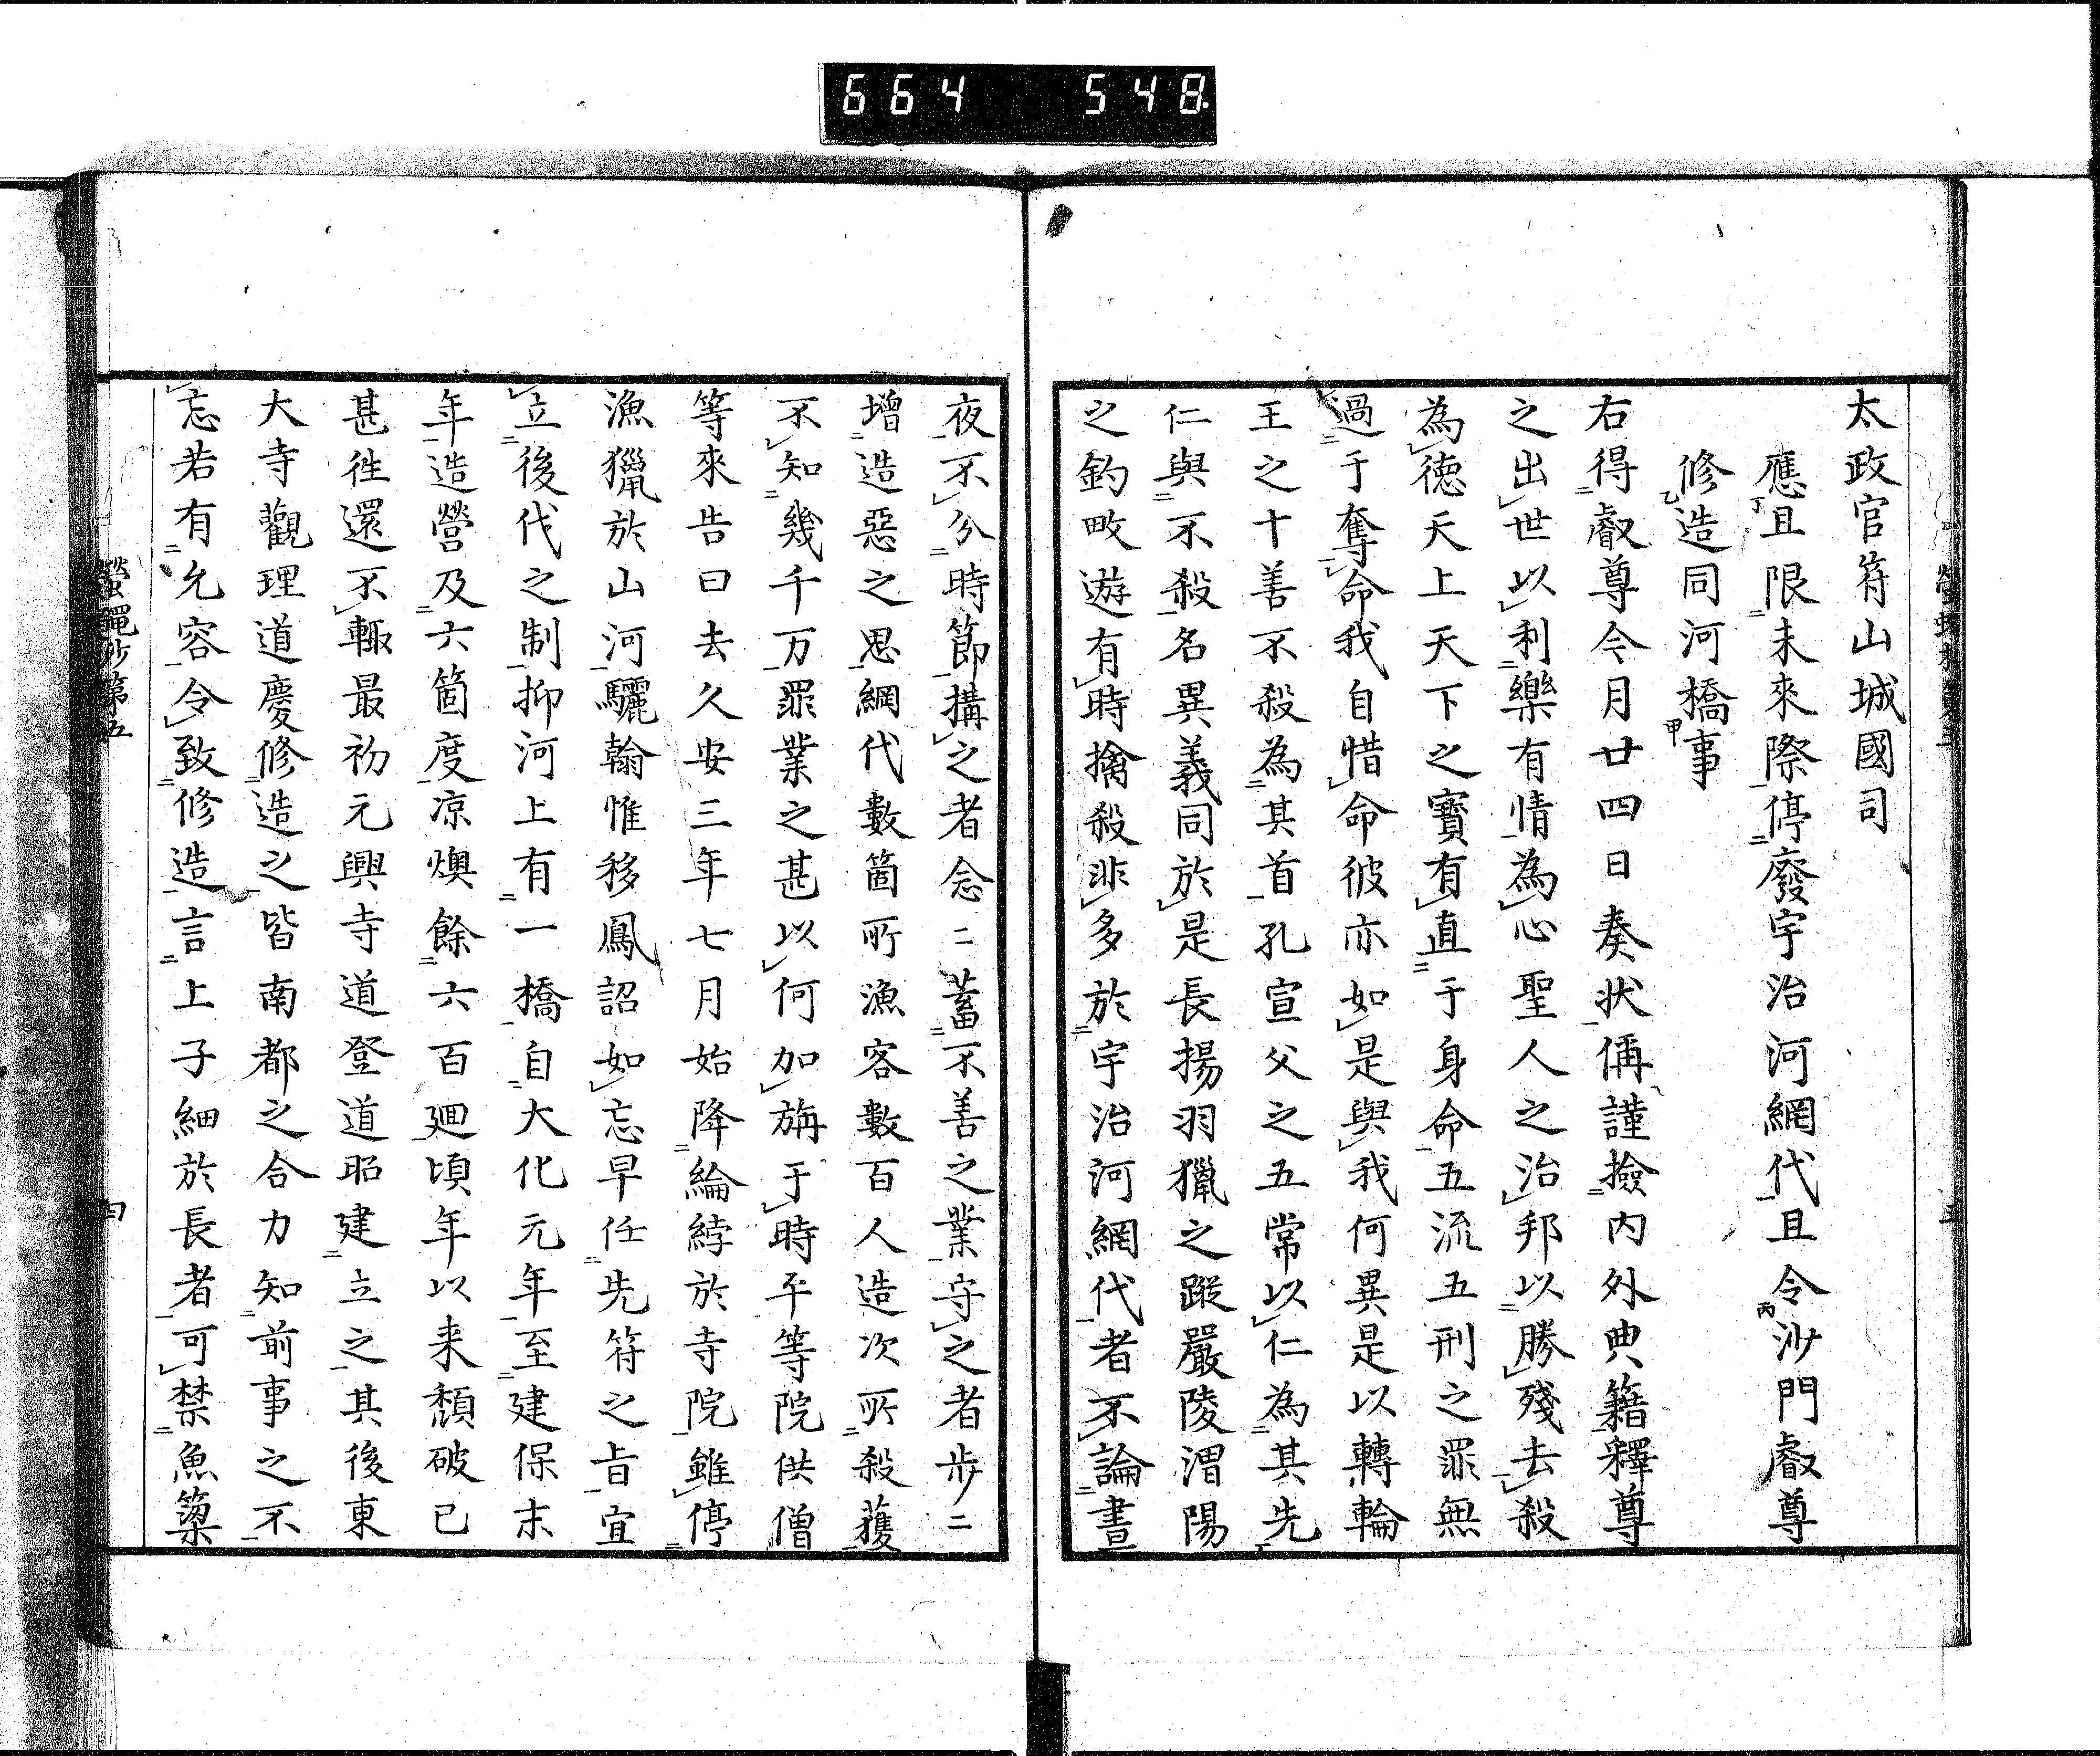 664 548.
太政官符山城國司
應且限未來際停廢宇治河網代且令沙門叡尊
修造同河橋事
右得叡尊今月廿四日奏状偁謹撿内外典籍釋尊
之出世以利樂有情為心聖人之治邦以勝殘去殺
為徳天上天下之寶有直于身命五流五刑之罪無
過于奪命我自惜命彼亦如是與我何異是以轉輪
王之十善不殺為其首孔宣父之五常以仁為其先
仁與不殺名異義同於是長揚羽獵之蹤嚴陵渭陽
之釣畋遊有時擒殺非多於宇治河網代者不論晝
夜不分時節搆之者念二蓄不善之業守之者步二
增造惡之思網代數箇所漁客數百人造次所殺獲
不知幾千万罪業之甚以何加旃于時平等院供僧
等來告曰去久安三年七月始降綸綍於寺院雖停
漁獵於山河驪翰惟移鳳詔如忘早任先符之旨宜
立後代之制抑河上有一橋自大化元年至建保末
年造營及六箇度凉燠餘六百廻頃年以来頽破已
甚徃還不輙最初元興寺道登道昭建立之其後東
大寺觀理道慶修造之皆南都之合力知前事之不
忘若有允容令致修造言上子細於長者可禁魚簗
螢蠅抄第五
四
三